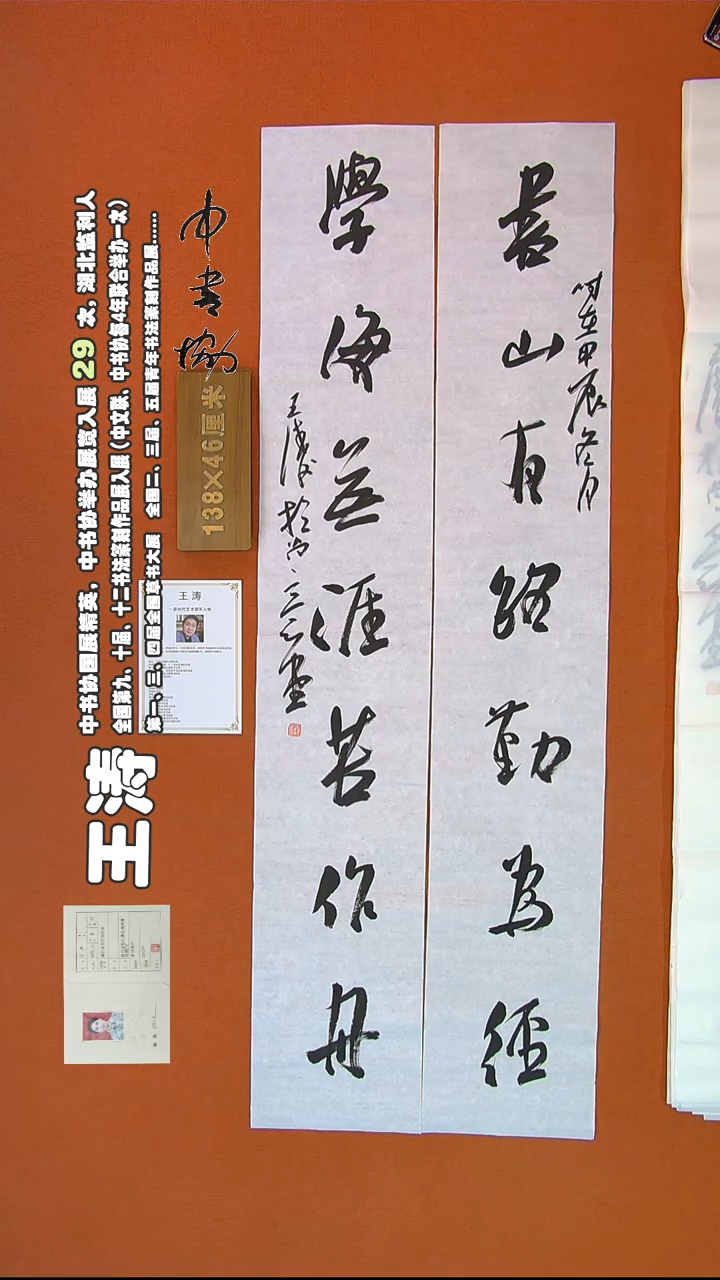 書山有路勤為徑
時在甲辰冬月
學海無涯苦作舟
王濤於
中书协
138×46厘米
王涛
中书协国展精英，中书协举办展览入展 29 次，湖北监利人
全国第九、十届、十二书法篆刻作品展入展（中文联、中书协每4年联合举办一次）
第一、三、四届全国草书大展 全国二、三届、五届青年书法篆刻作品展……
王 涛